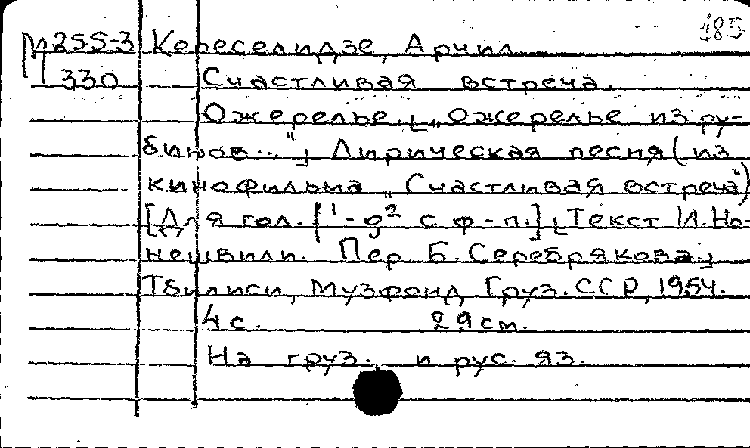 185
М255-3 Кереселидзе, Арчил
330 Счастливая встреча.
Ожерелье. [„Ожерелье из ру-
бинов..."] Лирическая песня (из
кинофильма „Счастливая встреча")
[Для гол. [1-g2 с ф-п.] [Текст И. Но-
нешвили. Пер Б. Серебрякова]
Тбилиси, Музфонд Груз. ССР, 1954.
4 с. 29 см.
На груз. и рус. яз.